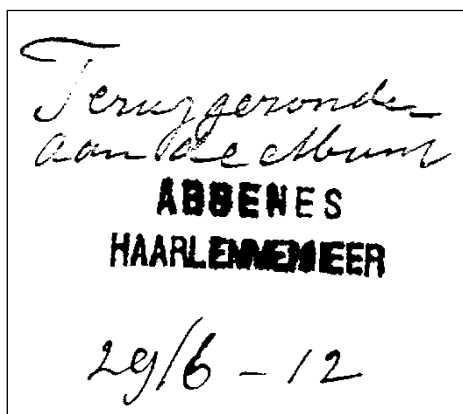 Teruggezonden
aan de Munt
ABBENES
HAARLEMMEMEER
29/6 - 12